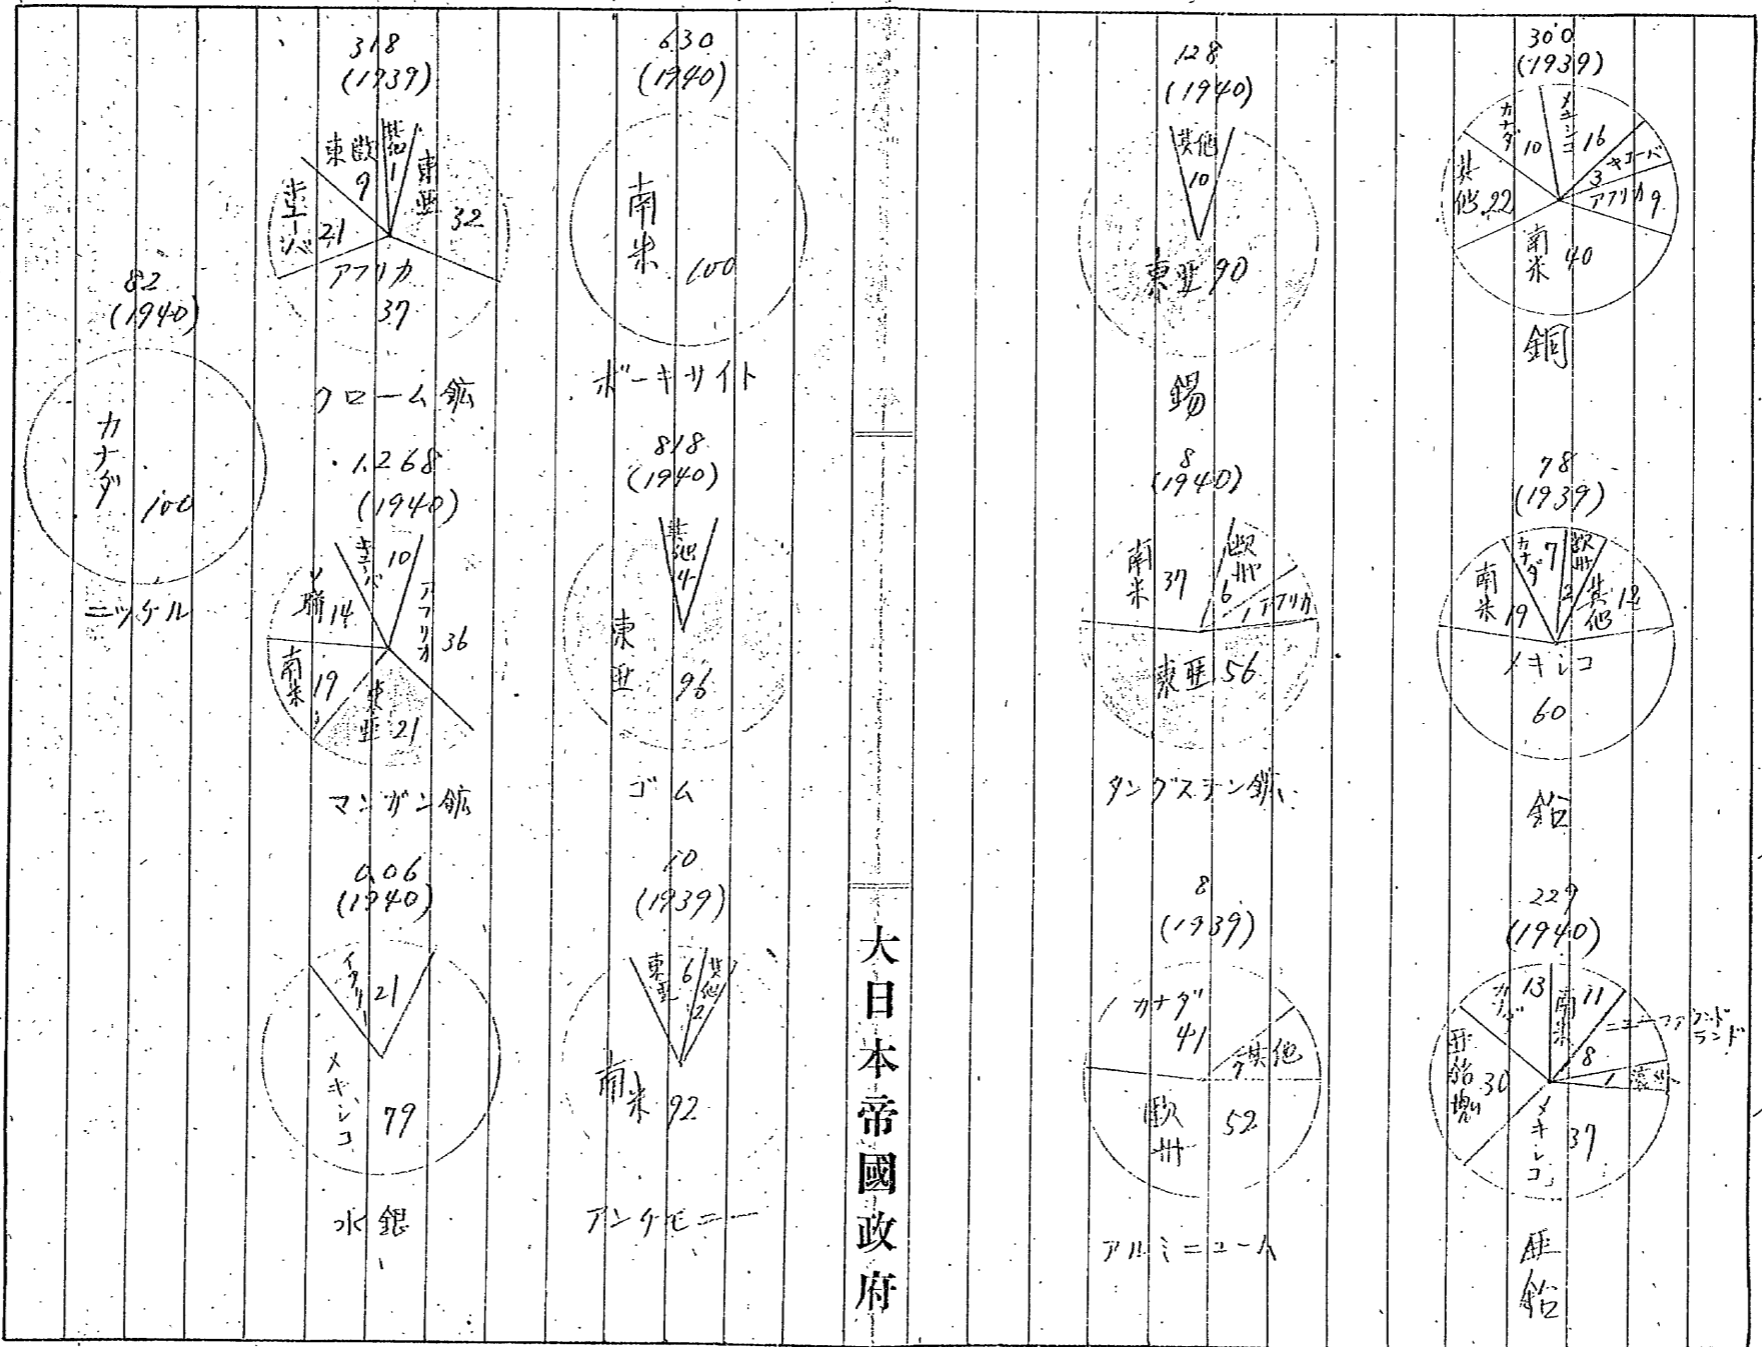 300
(1939)
メキシコ 16
キューバ 3
アフリカ 9
南米 40
其他 22
カナダ 10
銅
78
(1939)
カナダ 7
欧州 2
其他 12
メキシコ 60
南米 19
鉛
229
(1940)
カナダ 13
南米 11
ニューファウンドランド 8
1
メキシコ 37
亜鉛塊 30
亜鉛
128
(1940)
其他 10
東亜 90
錫
8
(1940)
南米 37
欧州 6
アフリカ 1
東亜 56
タングステン鉱
8
(1939)
カナダ 41
其他 7
欧州 52
アルミニューム
大日本帝國政府
630
(1940)
南米 100
ボーキサイト
818
(1940)
其他 4
東亜 96
ゴム
10
(1939)
東亜 6
其他 2
南米 92
アンケモニー
318
(1939)
東欧 9
其他 1
東亜 32
アフリカ 37
キューバ 21
クローム鉱
1.268
(1940)
キューバ 10
アフリカ 36
東亜 21
南米 19
ソ聯 14
マンガン鉱
0.06
(1940)
イタリー 21
メキシコ 79
水銀
82
(1940)
カナダ 100
ニッケル